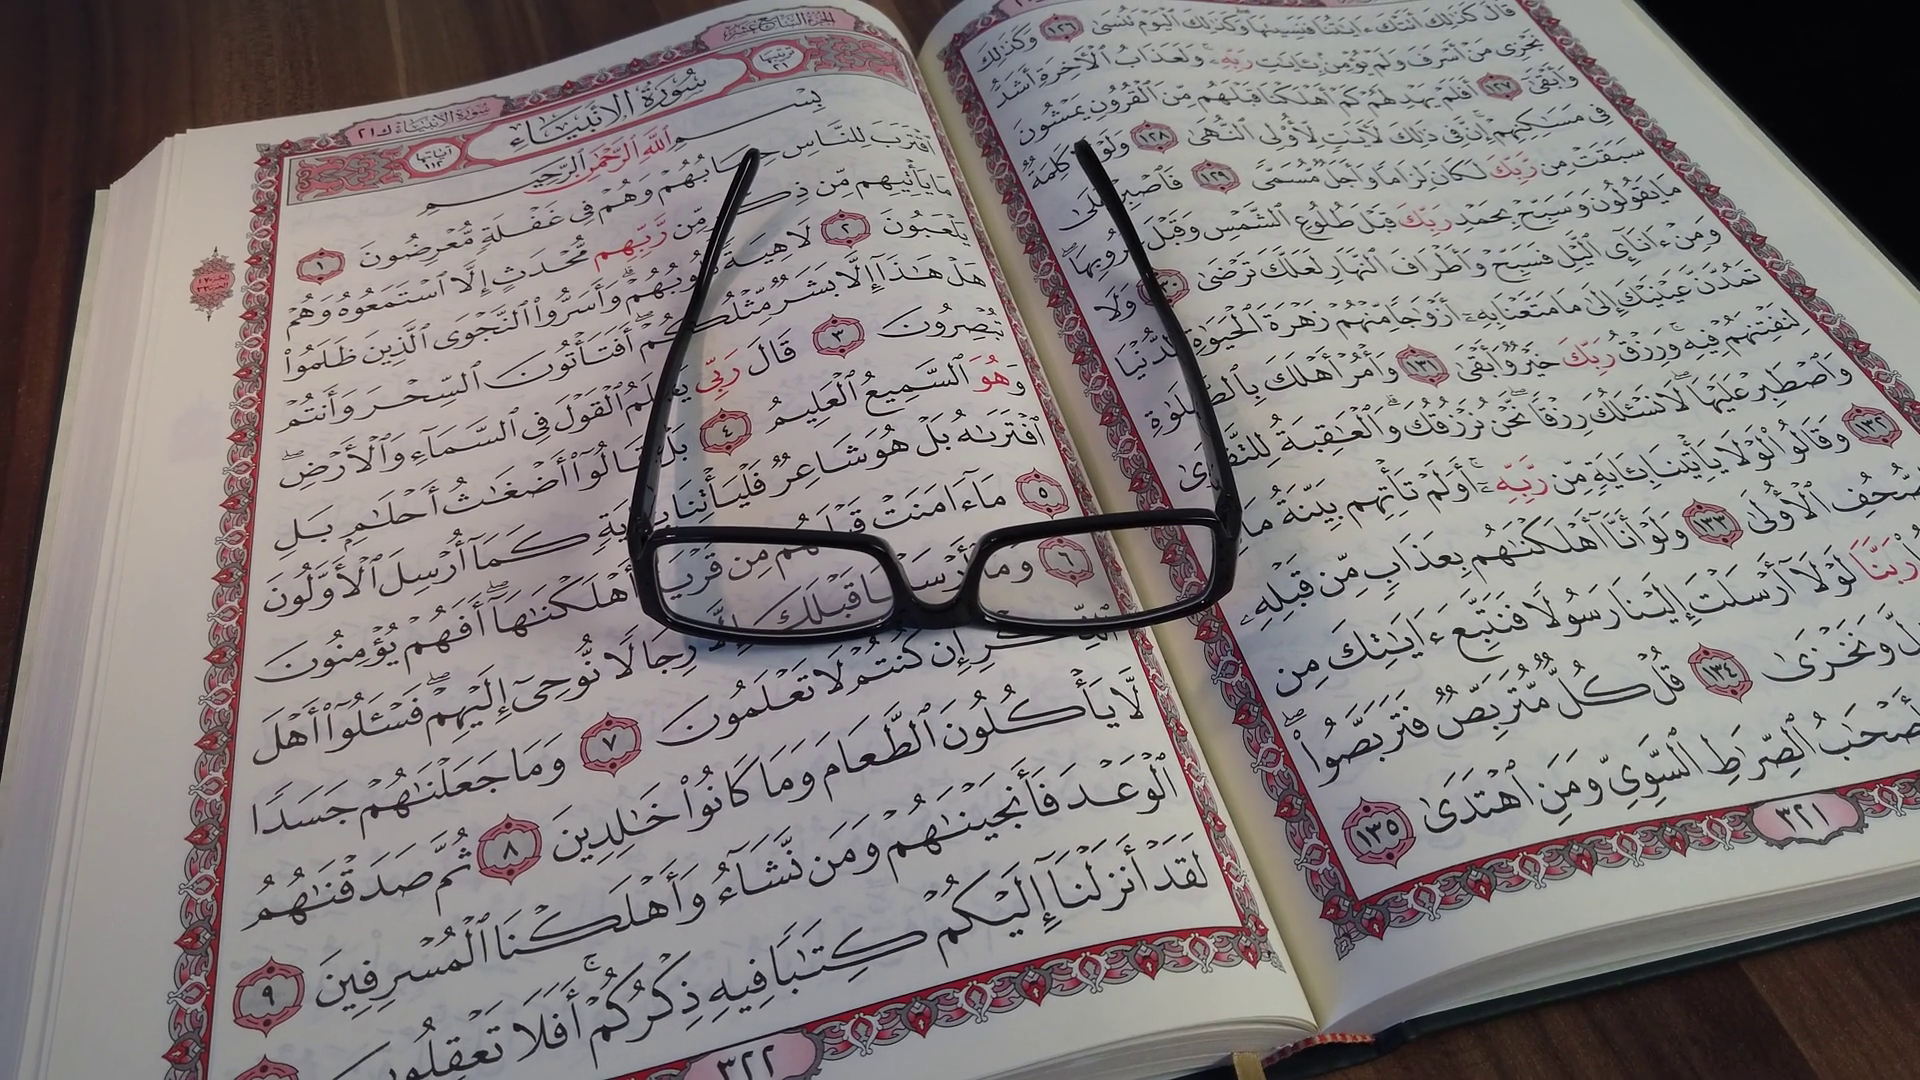 قَالَ كَذَٰلِكَ أَتَتْكَ ءَايَٰتُنَا فَنَسِيتَهَا وَكَذَٰلِكَ ٱلْيَوْمَ تُنسَىٰ ١٢٦ وَكَذَٰلِكَ
نَجْزِى مَنْ أَسْرَفَ وَلَمْ يُؤْمِنۢ بِـَٔايَٰتِ رَبِّهِۦ وَلَعَذَابُ ٱلْءَاخِرَةِ أَشَدُّ
وَأَبْقَىٰٓ ١٢٧ أَفَلَمْ يَهْدِ لَهُمْ كَمْ أَهْلَكْنَا قَبْلَهُم مِّنَ ٱلْقُرُونِ يَمْشُونَ
فِى مَسَٰكِنِهِمْ إِنَّ فِى ذَٰلِكَ لَءَايَٰتٍ لِّأُو۟لِى ٱلنُّهَىٰ ١٢٨ وَلَوْلَا كَلِمَةٌ
سَبَقَتْ مِن رَّبِّكَ لَكَانَ لِزَامًا وَأَجَلٌ مُّسَمًّى ١٢٩ فَٱصْبِرْ عَلَىٰ
مَا يَقُولُونَ وَسَبِّحْ بِحَمْدِ رَبِّكَ قَبْلَ طُلُوعِ ٱلشَّمْسِ وَقَبْلَ غُرُوبِهَا
وَمِنْ ءَانَآئِ ٱلَّيْلِ فَسَبِّحْ وَأَطْرَافَ ٱلنَّهَارِ لَعَلَّكَ تَرْضَىٰ ١٣٠ وَلَا
تَمُدَّنَّ عَيْنَيْكَ إِلَىٰ مَا مَتَّعْنَا بِهِۦٓ أَزْوَٰجًا مِّنْهُمْ زَهْرَةَ ٱلْحَيَوٰةِ ٱلدُّنْيَا
لِنَفْتِنَهُمْ فِيهِ وَرِزْقُ رَبِّكَ خَيْرٌ وَأَبْقَىٰ ١٣١ وَأْمُرْ أَهْلَكَ بِٱلصَّلَوٰةِ
وَٱصْطَبِرْ عَلَيْهَا لَا نَسْـَٔلُكَ رِزْقًا نَّحْنُ نَرْزُقُكَ وَٱلْعَٰقِبَةُ لِلتَّقْوَىٰ
١٣٢ وَقَالُوا۟ لَوْلَا يَأْتِينَا بِـَٔايَةٍ مِّن رَّبِّهِۦٓ أَوَلَمْ تَأْتِهِم بَيِّنَةُ مَا
ٱلصُّحُفِ ٱلْأُولَىٰ ١٣٣ وَلَوْ أَنَّآ أَهْلَكْنَٰهُم بِعَذَابٍ مِّن قَبْلِهِۦ
رَبَّنَا لَوْلَآ أَرْسَلْتَ إِلَيْنَا رَسُولًا فَنَتَّبِعَ ءَايَٰتِكَ مِن
وَنَخْزَىٰ ١٣٤ قُلْ كُلٌّ مُّتَرَبِّصٌ فَتَرَبَّصُوا۟
أَصْحَٰبُ ٱلصِّرَٰطِ ٱلسَّوِىِّ وَمَنِ ٱهْتَدَىٰ ١٣٥
٣٢١
الجزء السابع عشر
سورة الأنبياء ٢١
ترتيبها ٢١
سُورَةُ الأنبيَاء
آياتها ١١٢
بِسْمِ ٱللَّهِ ٱلرَّحْمَٰنِ ٱلرَّحِيمِ
ٱقْتَرَبَ لِلنَّاسِ حِسَابُهُمْ وَهُمْ فِى غَفْلَةٍ مُّعْرِضُونَ ١
مَا يَأْتِيهِم مِّن ذِكْرٍ مِّن رَّبِّهِم مُّحْدَثٍ إِلَّا ٱسْتَمَعُوهُ وَهُمْ
يَلْعَبُونَ ٢ لَاهِيَةً قُلُوبُهُمْ وَأَسَرُّوا۟ ٱلنَّجْوَى ٱلَّذِينَ ظَلَمُوا۟
هَلْ هَٰذَآ إِلَّا بَشَرٌ مِّثْلُكُمْ أَفَتَأْتُونَ ٱلسِّحْرَ وَأَنتُمْ
تُبْصِرُونَ ٣ قَالَ رَبِّى يَعْلَمُ ٱلْقَوْلَ فِى ٱلسَّمَآءِ وَٱلْأَرْضِ
وَهُوَ ٱلسَّمِيعُ ٱلْعَلِيمُ ٤ بَلْ قَالُوٓا۟ أَضْغَٰثُ أَحْلَٰمٍ بَلِ
ٱفْتَرَىٰهُ بَلْ هُوَ شَاعِرٌ فَلْيَأْتِنَا بِـَٔايَةٍ كَمَآ أُرْسِلَ ٱلْأَوَّلُونَ
٥ مَآ ءَامَنَتْ قَبْلَهُم مِّن قَرْيَةٍ أَهْلَكْنَٰهَآ أَفَهُمْ يُؤْمِنُونَ
٦ وَمَآ أَرْسَلْنَا قَبْلَكَ إِلَّا رِجَالًا نُّوحِىٓ إِلَيْهِمْ فَسْـَٔلُوٓا۟ أَهْلَ
ٱلذِّكْرِ إِن كُنتُمْ لَا تَعْلَمُونَ ٧ وَمَا جَعَلْنَٰهُمْ جَسَدًا
لَّا يَأْكُلُونَ ٱلطَّعَامَ وَمَا كَانُوا۟ خَٰلِدِينَ ٨ ثُمَّ صَدَقْنَٰهُمُ
ٱلْوَعْدَ فَأَنجَيْنَٰهُمْ وَمَن نَّشَآءُ وَأَهْلَكْنَا ٱلْمُسْرِفِينَ ٩
لَقَدْ أَنزَلْنَآ إِلَيْكُمْ كِتَٰبًا فِيهِ ذِكْرُكُمْ أَفَلَا تَعْقِلُونَ
٣٢٢